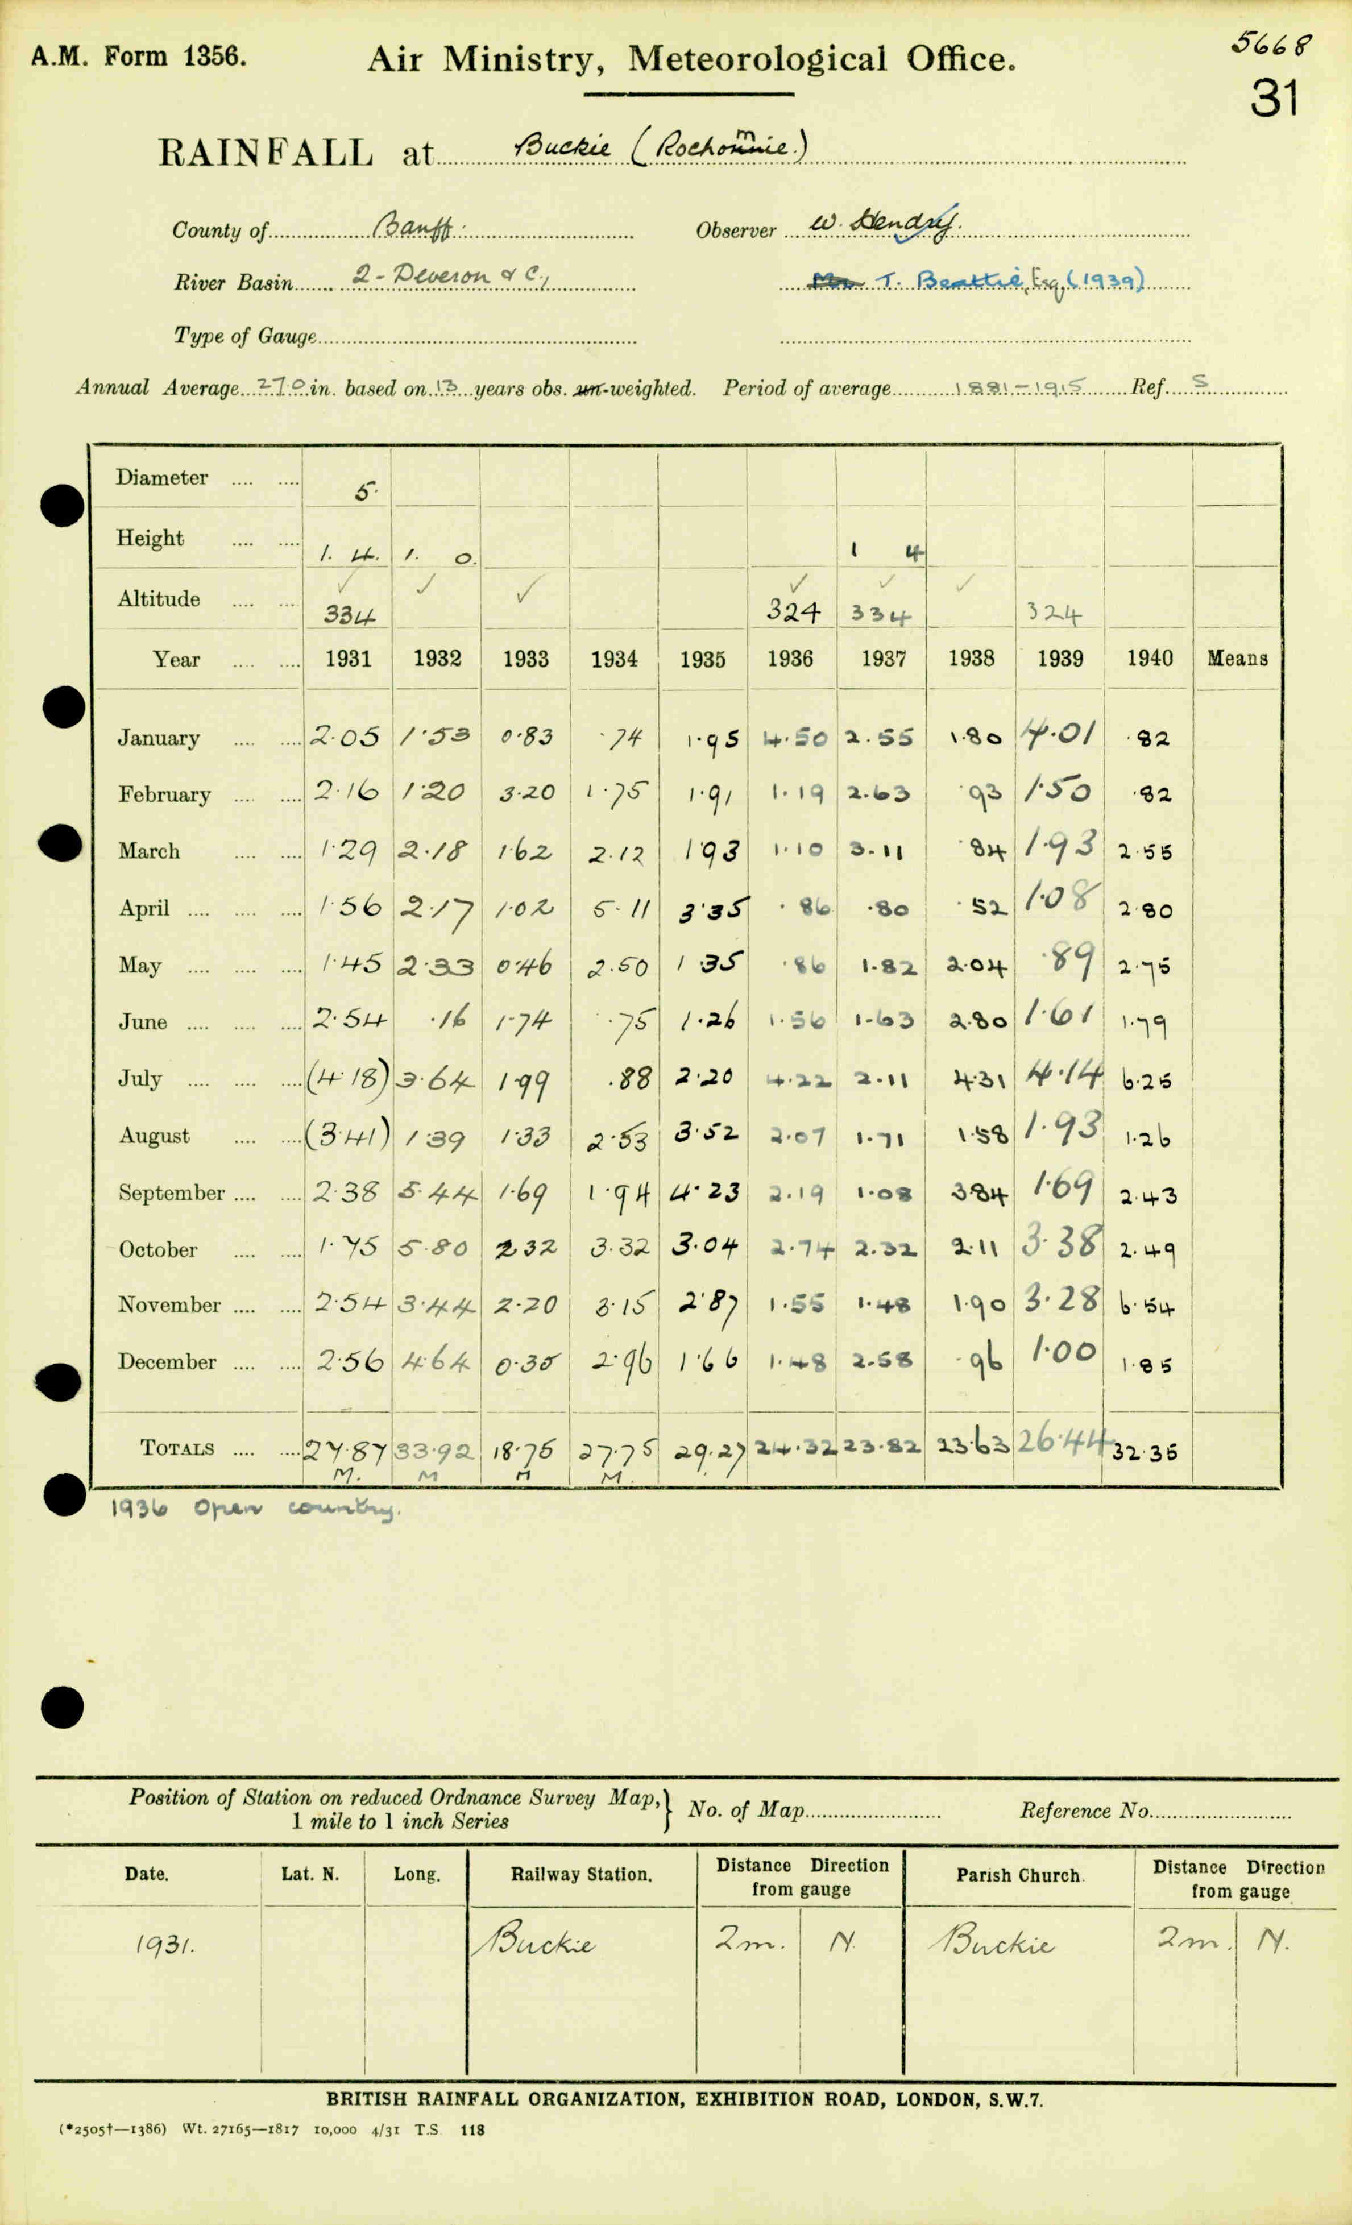 A.M. Form 1356. Air Ministry, Meteorological Office. 5668
31
RAINFALL at Buckie (Rochomie.)
County of Banff. Observer W. Hendry.
River Basin 2 - Deveron & C, Mr T. Beattie, Esq. (1939)
Type of Gauge
Annual Average 27.0 in. based on 13 years obs. un-weighted. Period of average 1881-1915 Ref. S
Diameter 5.
Height 1. 4. 1. 0. 1 4
Altitude 334 324 334 324
Year 1931 1932 1933 1934 1935 1936 1937 1938 1939 1940 Means
January 2.05 1.53 0.83 .74 1.95 4.50 2.55 1.80 4.01 .82
February 2.16 1.20 3.20 1.75 1.91 1.19 2.63 .93 1.50 .82
March 1.29 2.18 1.62 2.12 1.93 1.10 3.11 .84 1.93 2.55
April 1.56 2.17 1.02 5.11 3.35 .86 .80 .52 1.08 2.80
May 1.45 2.33 0.46 2.50 1.35 .86 1.82 2.04 .89 2.75
June 2.54 .16 1.74 .75 1.26 1.56 1.63 2.80 1.61 1.79
July (4.18) 3.64 1.99 .88 2.20 4.22 2.11 4.31 4.14 6.25
August (3.41) 1.39 1.33 2.53 3.52 2.07 1.71 1.58 1.93 1.26
September 2.38 5.44 1.69 1.94 4.23 2.19 1.08 3.84 1.69 2.43
October 1.75 5.80 2.32 3.32 3.04 2.74 2.32 2.11 3.38 2.49
November 2.54 3.44 2.20 3.15 2.87 1.55 1.48 1.90 3.28 6.54
December 2.56 4.64 0.35 2.96 1.66 1.48 2.58 .96 1.00 1.85
TOTALS 27.87 33.92 18.75 27.75 29.27 24.32 23.82 23.63 26.44 32.35
M. M M M.
1936 Open country.
Position of Station on reduced Ordnance Survey Map, 1 mile to 1 inch Series } No. of Map Reference No.
Date. Lat. N. Long. Railway Station. Distance Direction from gauge Parish Church. Distance Direction from gauge
1931. Buckie 2m. N. Buckie 2m. N.
BRITISH RAINFALL ORGANIZATION, EXHIBITION ROAD, LONDON, S.W.7.
(*2505†—1386) Wt. 27165—1817 10,000 4/31 T.S. 118